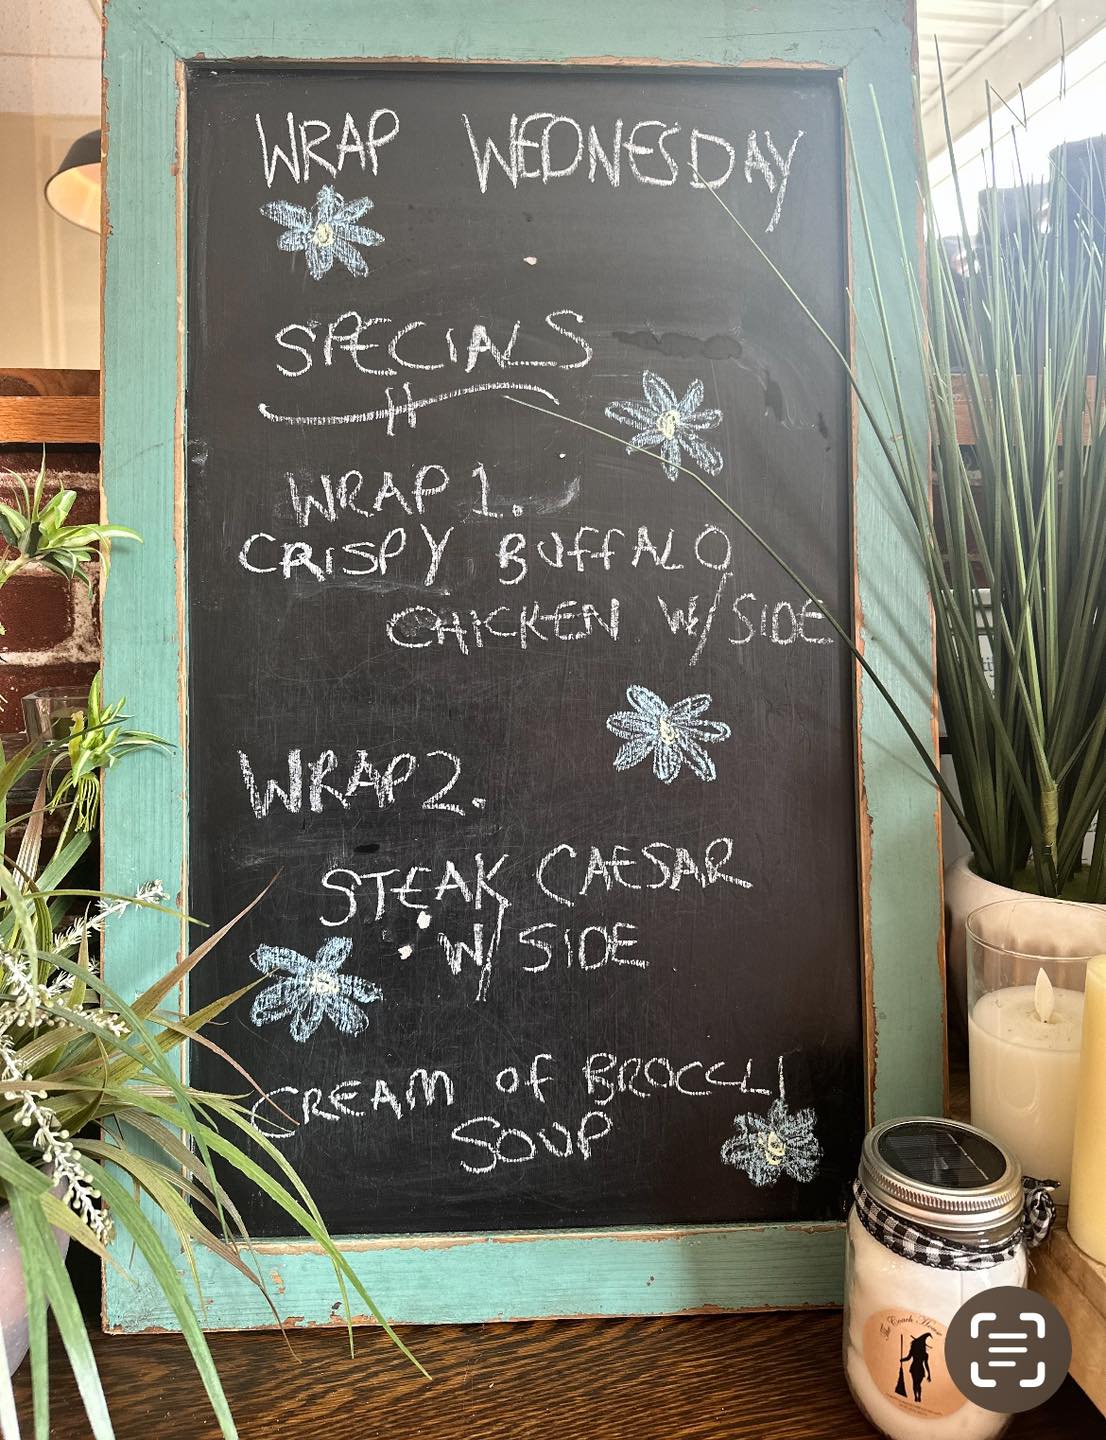 WRAP WEDNESDAY
SPECIALS
WRAP 1.
CRISPY BUFFALO
CHICKEN W/ SIDE
WRAP 2.
STEAK CAESAR
W/ SIDE
CREAM OF BROCCLI
SOUP
The Coach House